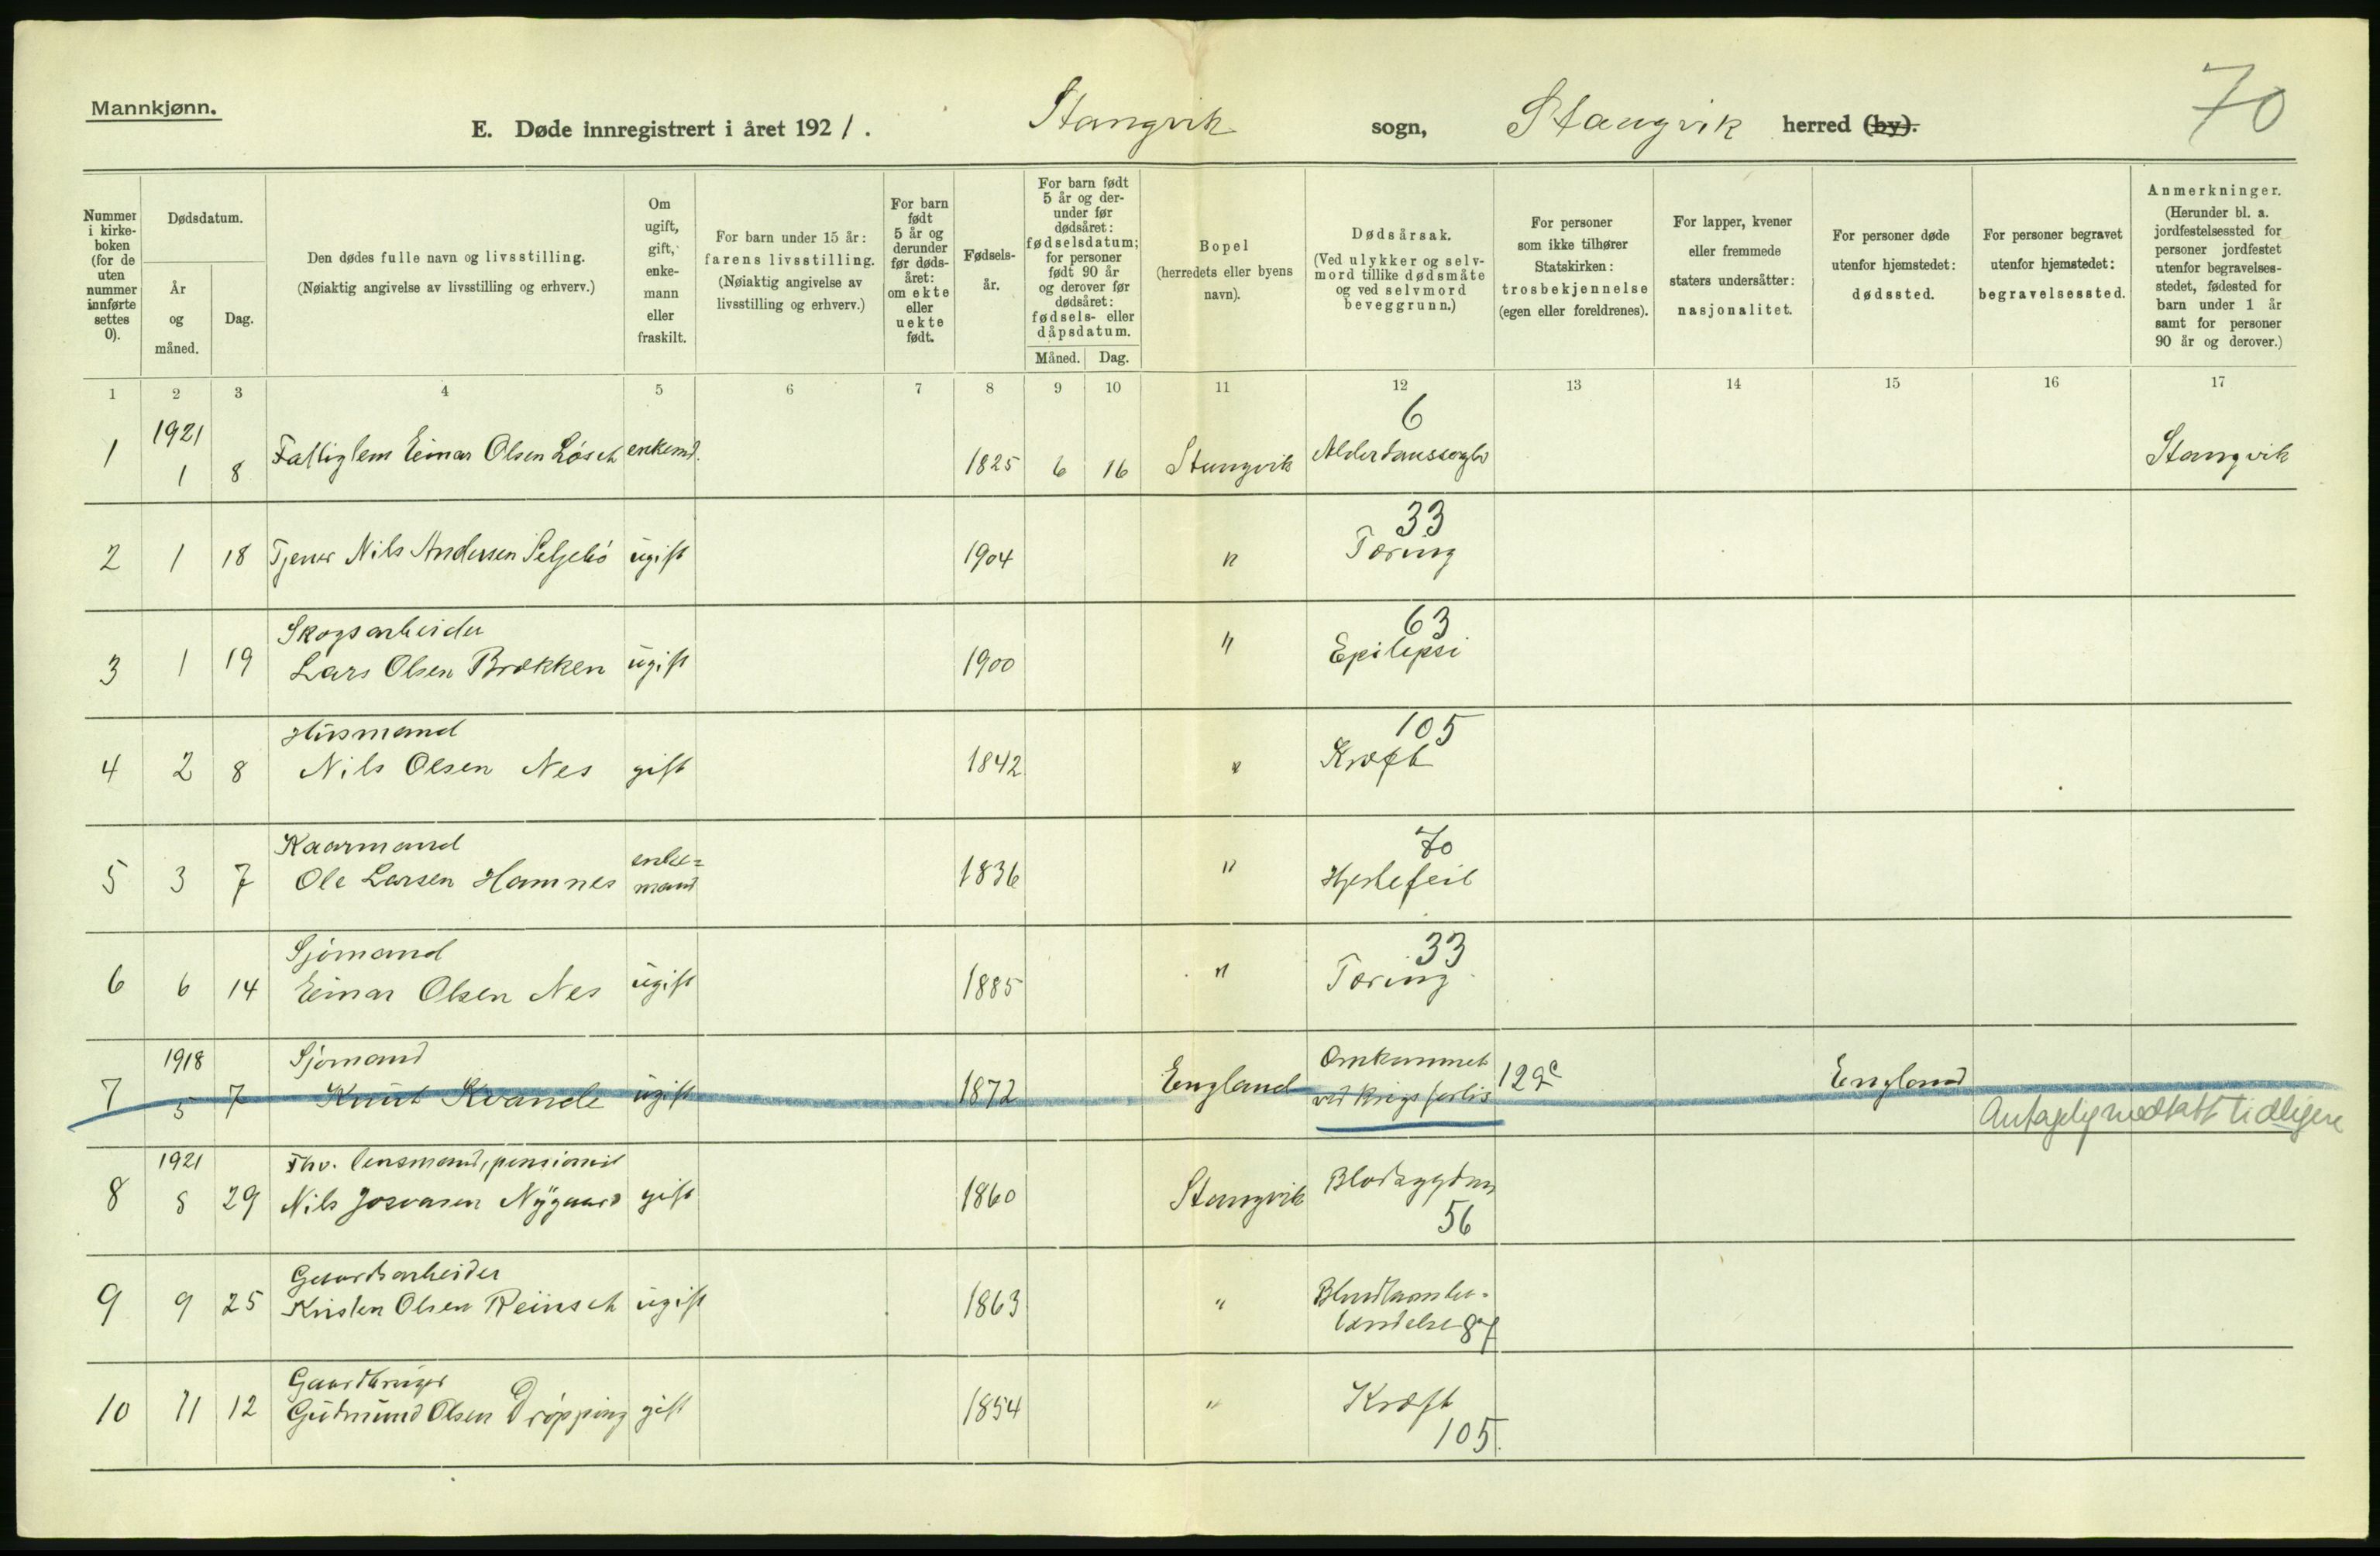 Mannkjønn.
E. Døde innregistrert i året 1921. Stangvik sogn, Stangvik herred (by).
70
Nummer i kirke-boken (for de uten nummer innførte settes 0).
Dødsdatum.
År og måned.
Dag.
Den dødes fulle navn og livsstilling.
(Nøiaktig angivelse av livsstilling og erhverv.)
Om ugift, gift, enke-mann eller fraskilt.
For barn under 15 år: farens livsstilling.
(Nøiaktig angivelse av livsstilling og erhverv.)
For barn født 5 år og derunder før døds-året: om ekte eller uekte født.
Fødsels-år.
For barn født 5 år og der-under før dødsåret: fødselsdatum; for personer født 90 år og derover før dødsåret: fødsels- eller dåpsdatum.
Måned. Dag.
Bopel
(herredets eller byens navn).
Dødsårsak.
(Ved ulykker og selv-mord tillike dødsmåte og ved selvmord beveggrunn.)
For personer som ikke tilhører Statskirken: trosbekjennelse (egen eller foreldrenes).
For lapper, kvener eller fremmede staters undersåtter: nasjonalitet.
For personer døde utenfor hjemstedet: dødssted.
For personer begravet utenfor hjemstedet: begravelsessted.
Anmerkninger.
(Herunder bl. a. jordfestelsessted for personer jordfestet utenfor begravelses-stedet, fødested for barn under 1 år samt for personer 90 år og derover.)
1 2 3 4 5 6 7 8 9 10 11 12 13 14 15 16 17
1921 6
1 1 8 Fattiglem Einar Olsen Løseth enkemd. 1825 6 16 Stangvik Alderdomssvaghd Stangvik
33
2 1 18 Tjener Nils Andersen Seljebó ugift 1904 " Tæring
Skogsarbeider 63
3 1 19 Lars Olsen Brækken ugift 1900 " Epilepsi
Husmand 105
4 2 8 Nils Olsen Nes gift 1842 " Kræft
Kaarmand 70
5 3 7 Ole Larsen Hamnes enke=mand 1836 " Hjertefeil
Sjómand 33
6 6 14 Einar Olsen Nes ugift 1885 " Tæring
1918 Sjømand Omkommet
7 5 7 Knut Kvande ugift 1872 England ved krigsforlis 129c England
Antagelig medtatt tidligere
1921 Fhv. lensmand, pensionist
8 5 29 Nils Josvasen Nygaard gift 1860 Stangvik Blodsygdom
56
Gaardsarbeider
9 9 25 Kristen Olsen Reiinseth ugift 1863 " Blindtarmbe-
tændelse 87
Gaardbruger
10 11 12 Gudmund Olsen Drøpping gift 1854 " Kræft
105.